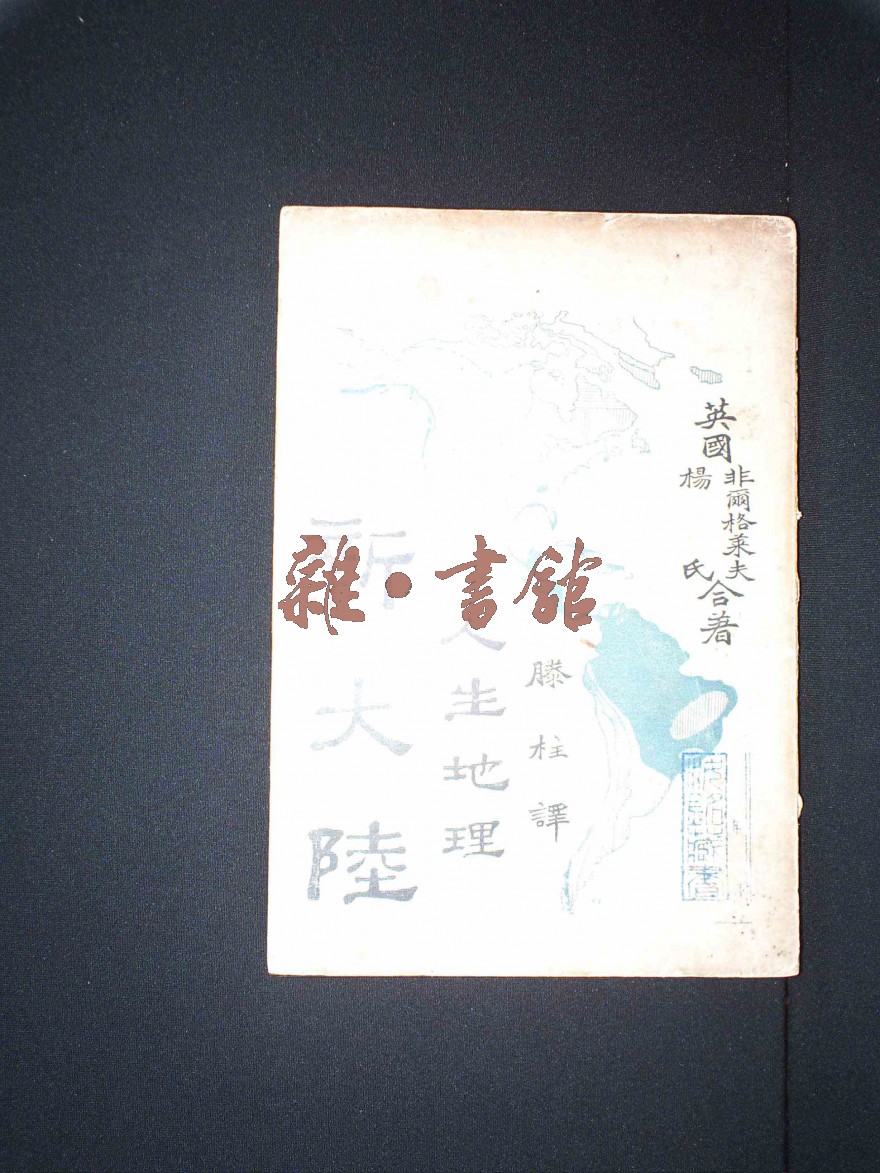 英國
非爾格萊夫
楊氏
合著
滕柱譯
人生地理
新大陸
雜·書館